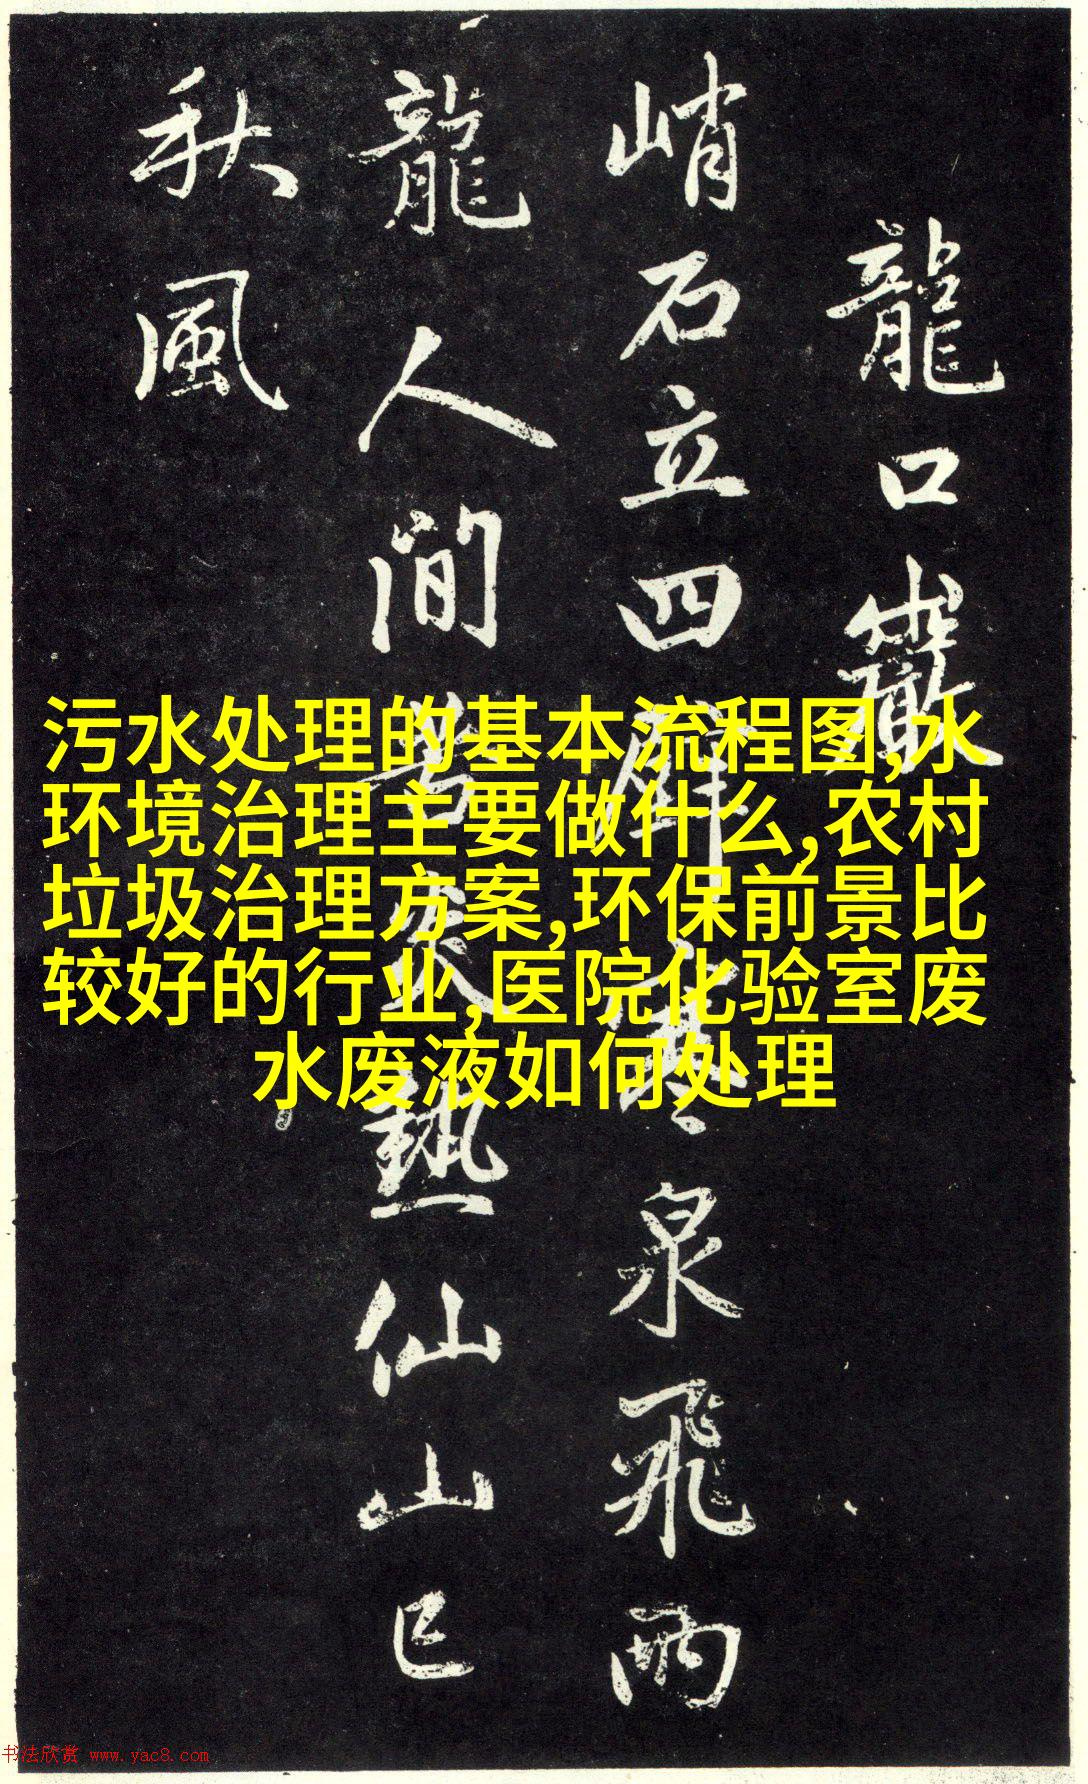 龍口巖
峭石立四壁寒泉飛雨
龍人間苦炎熱仙山已
秋風
污水处理的基本流程图,水
环境治理主要做什么,农村
垃圾治理方案,环保前景比
较好的行业,医院化验室废
水废液如何处理
书法欣赏 www.yac8.com